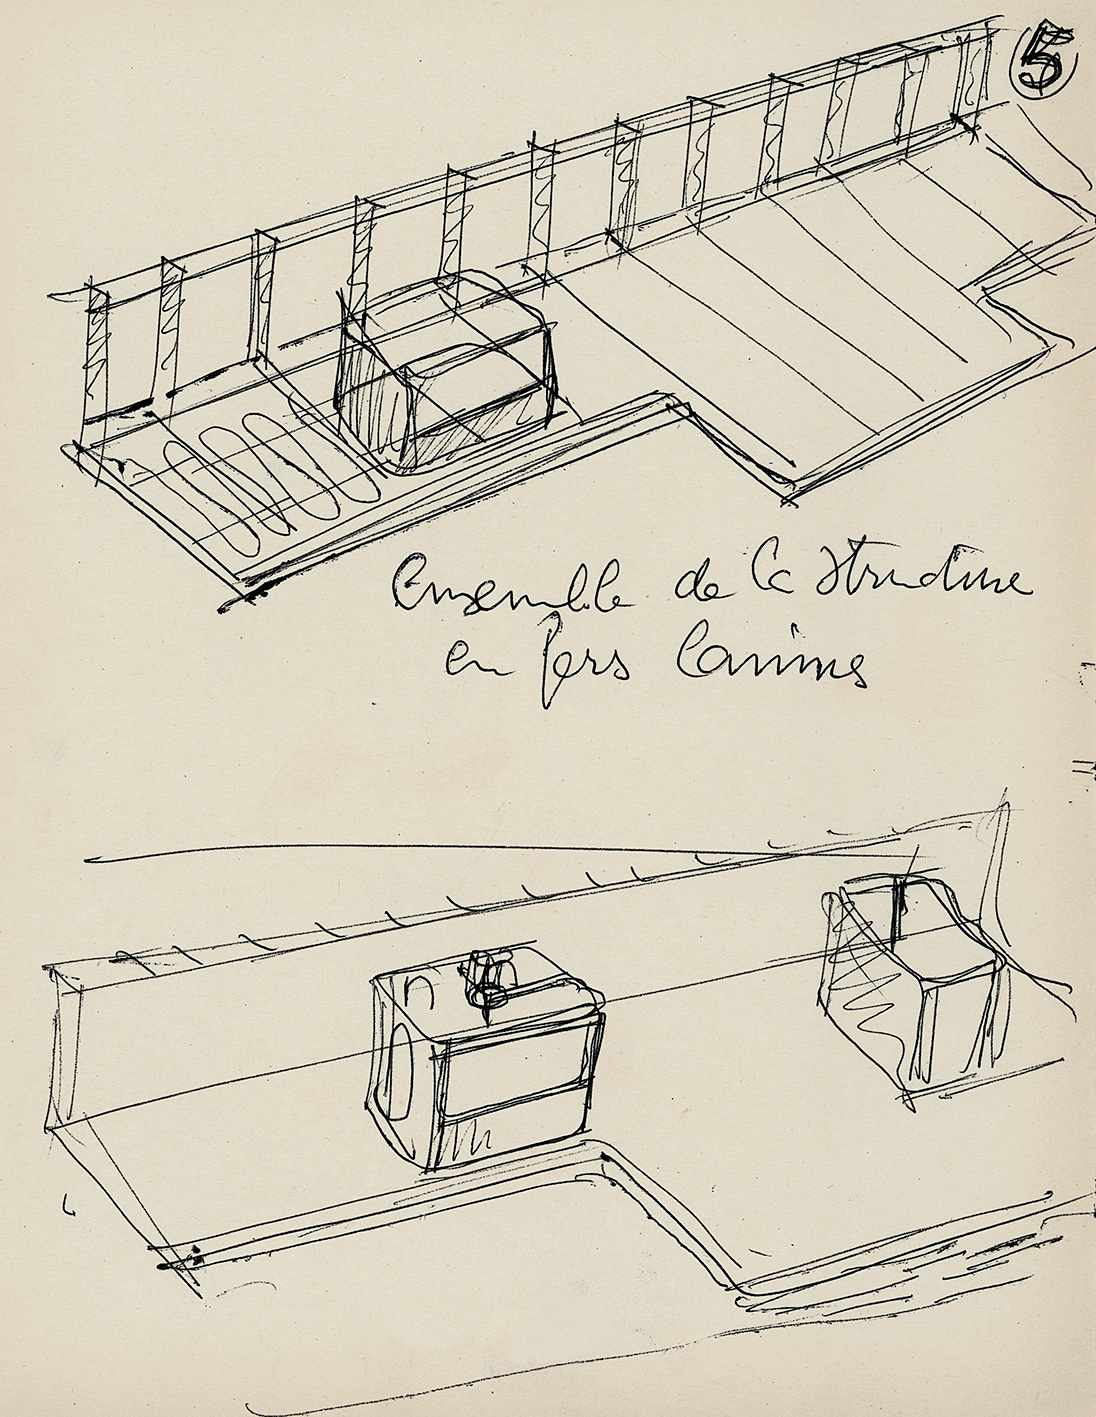 5
Ensemble de la structure
en fers laminés